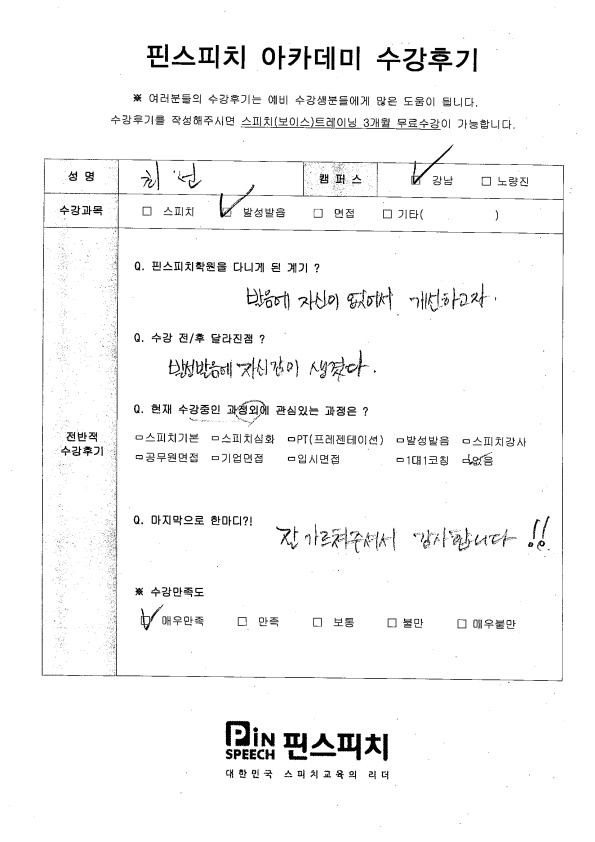 핀스피치 아카데미 수강후기
※ 여러분들의 수강후기는 예비 수강생분들에게 많은 도움이 됩니다.
수강후기를 작성해주시면 스피치(보이스)트레이닝 3개월 무료수강이 가능합니다.
성 명 최 캠퍼스 ☑ 강남 □ 노량진
수강과목 □ 스피치 ☑ 발성발음 □ 면접 □ 기타( )
Q. 핀스피치학원을 다니게 된 계기 ?
발음에 자신이 없어서 개선하고자.
Q. 수강 전/후 달라진점 ?
발성발음에 자신감이 생겼다.
Q. 현재 수강중인 과정외에 관심있는 과정은 ?
전반적
수강후기
□스피치기본 □스피치심화 □PT(프레젠테이션) □발성발음 □스피치강사
□공무원면접 □기업면접 □입시면접 □1대1코칭 ☑없음
Q. 마지막으로 한마디?!
잘 가르쳐주셔서 감사합니다 !!
※ 수강만족도
☑ 매우만족 □ 만족 □ 보통 □ 불만 □ 매우불만
PiN SPEECH 핀스피치
대한민국 스피치교육의 리더